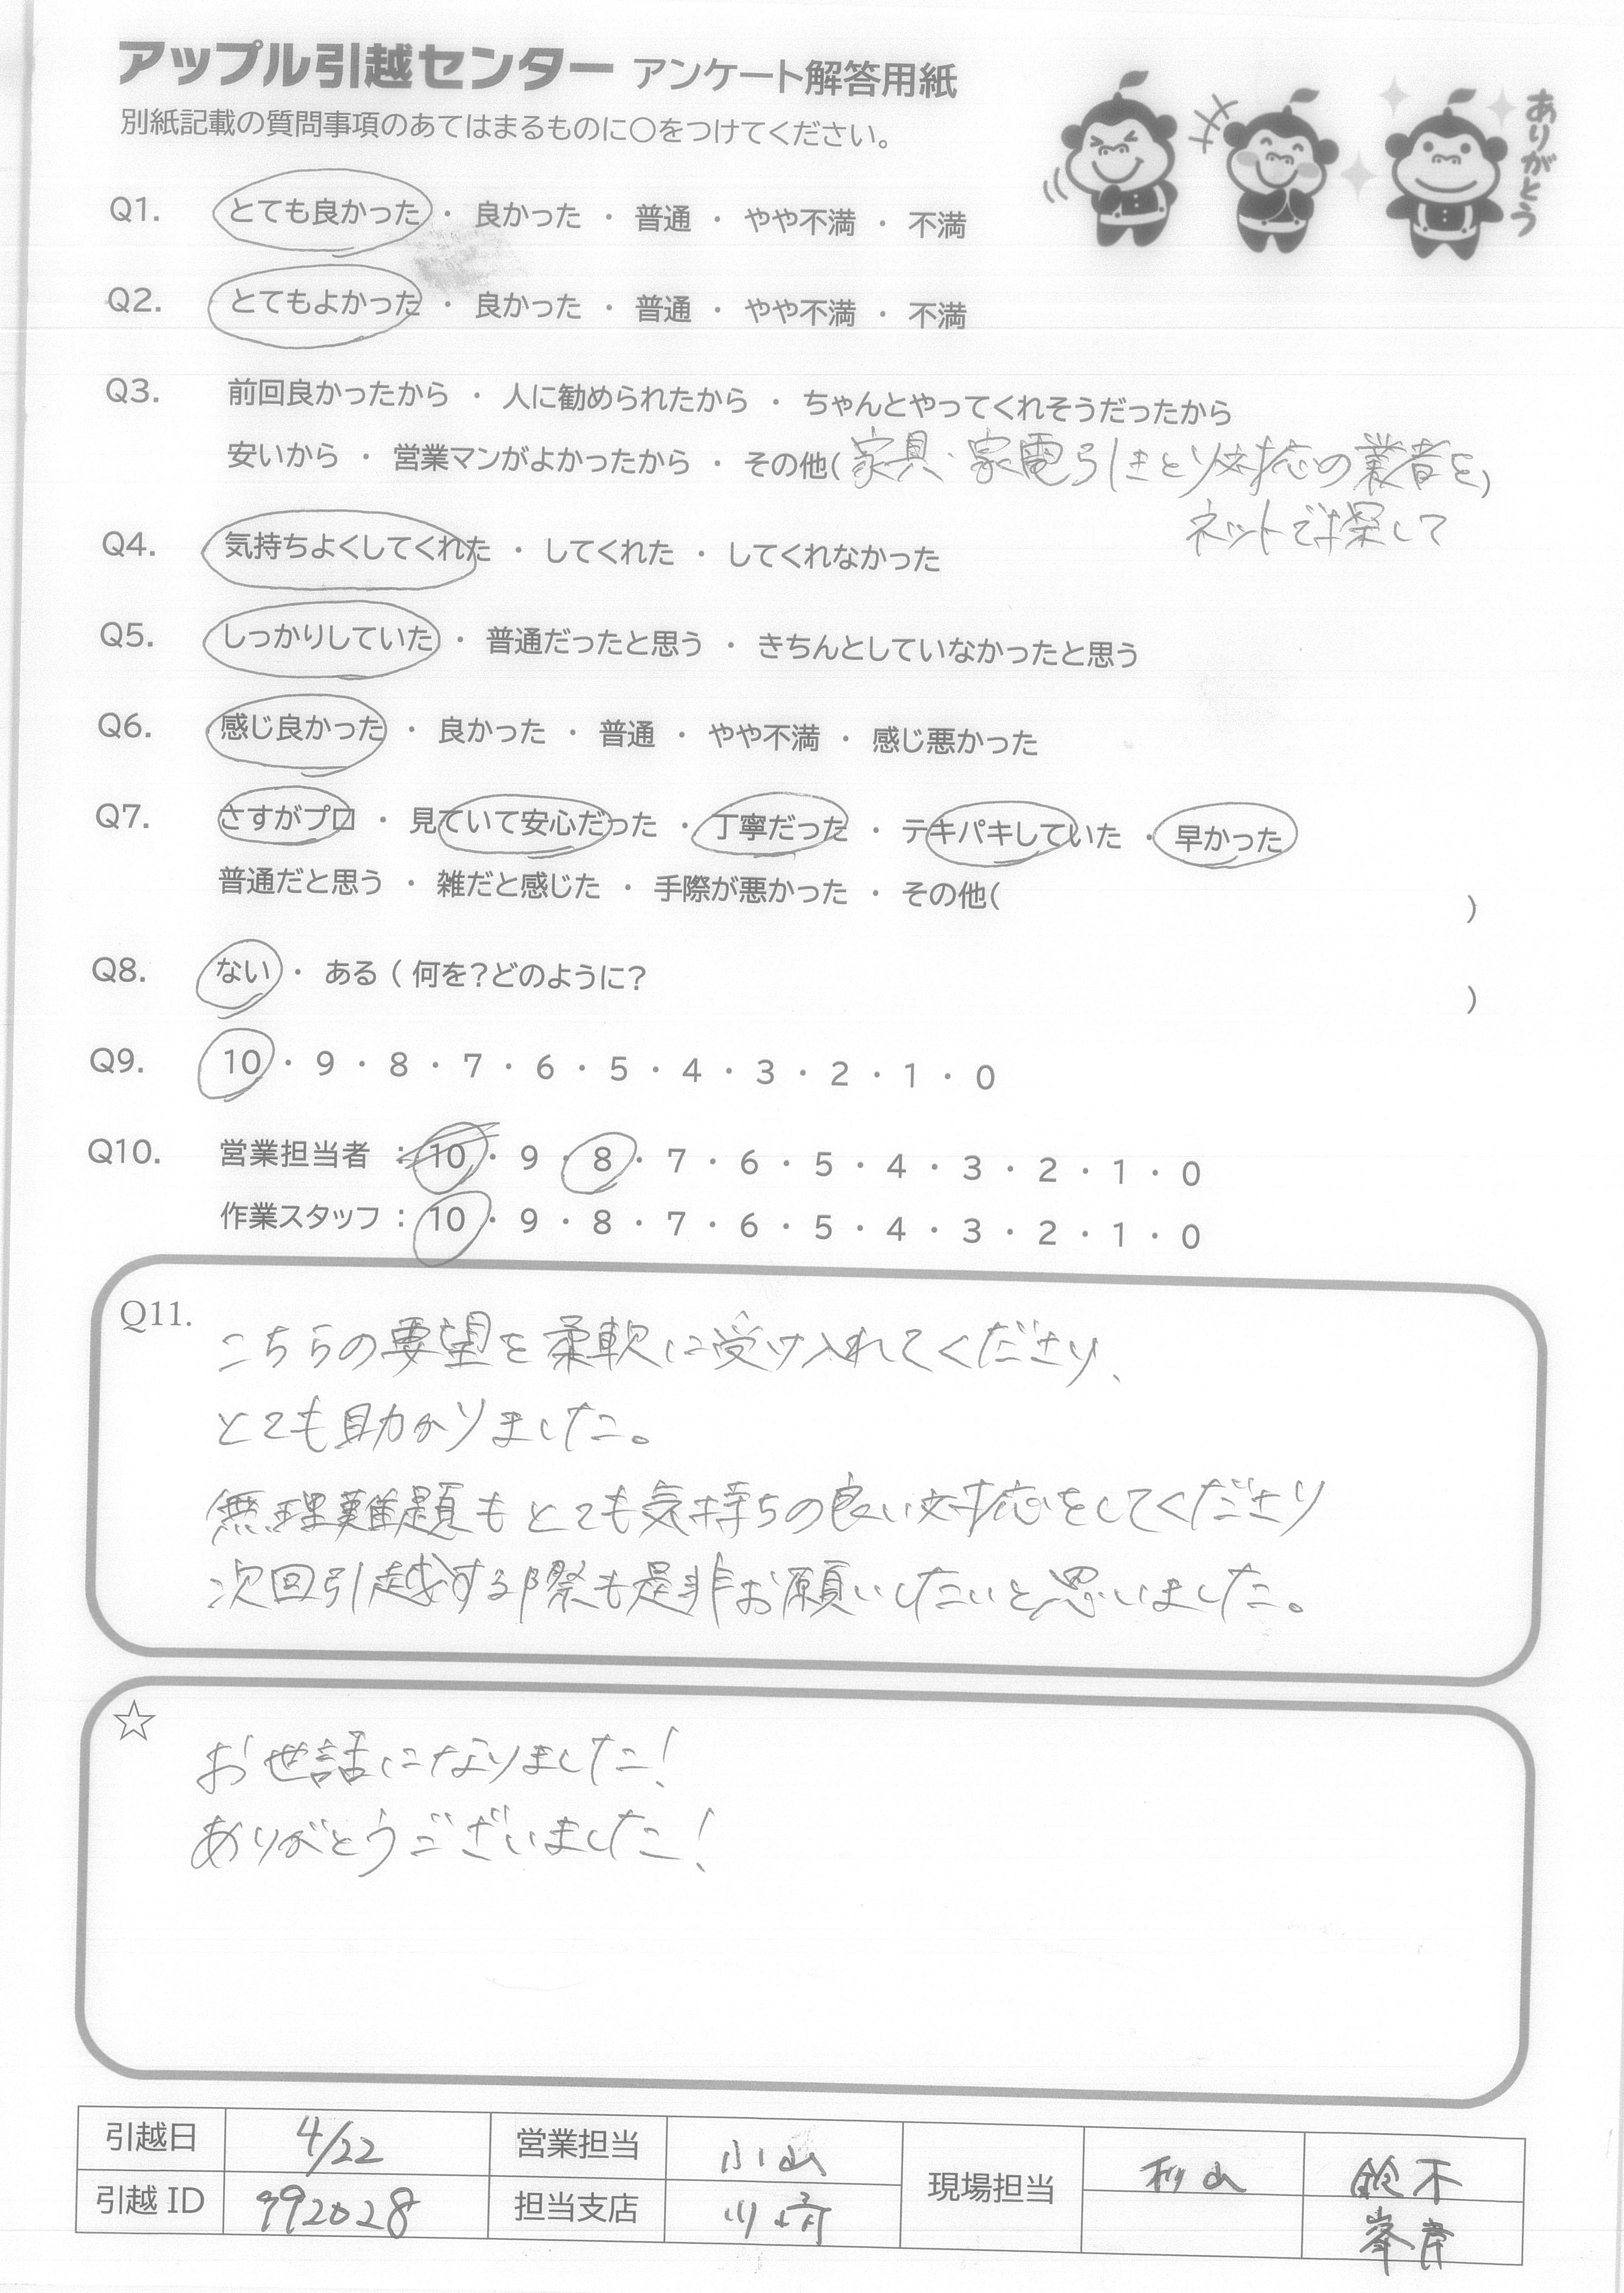 アップル引越センター アンケート解答用紙
ありがとう
別紙記載の質問事項のあてはまるものに〇をつけてください。
Q1. とても良かった ・ 良かった ・ 普通 ・ やや不満 ・ 不満
Q2. とてもよかった ・ 良かった ・ 普通 ・ やや不満 ・ 不満
Q3. 前回良かったから ・ 人に勧められたから ・ ちゃんとやってくれそうだったから
安いから ・ 営業マンがよかったから ・ その他(家具・家電引きとり対応の業者を)
ネットで探して
Q4. 気持ちよくしてくれた ・ してくれた ・ してくれなかった
Q5. しっかりしていた ・ 普通だったと思う ・ きちんとしていなかったと思う
Q6. 感じ良かった ・ 良かった ・ 普通 ・ やや不満 ・ 感じ悪かった
Q7. さすがプロ ・ 見ていて安心だった ・ 丁寧だった ・ テキパキしていた ・ 早かった
普通だと思う ・ 雑だと感じた ・ 手際が悪かった ・ その他( )
Q8. ない ・ ある ( 何を?どのように? )
Q9. 10 ・ 9 ・ 8 ・ 7 ・ 6 ・ 5 ・ 4 ・ 3 ・ 2 ・ 1 ・ 0
Q10. 営業担当者 : 10 ・ 9 ・ 8 ・ 7 ・ 6 ・ 5 ・ 4 ・ 3 ・ 2 ・ 1 ・ 0
作業スタッフ : 10 ・ 9 ・ 8 ・ 7 ・ 6 ・ 5 ・ 4 ・ 3 ・ 2 ・ 1 ・ 0
Q11. こちらの要望を柔軟に受け入れてくださり、
とても助かりました。
無理難題もとても気持ちの良い対応をしてくださり
次回引越する際も是非お願いしたいと思いました。
☆
お世話になりました!
ありがとうございました!
引越日 4/22 営業担当 小山 現場担当 杉山 鈴木
引越 ID 992028 担当支店 川崎